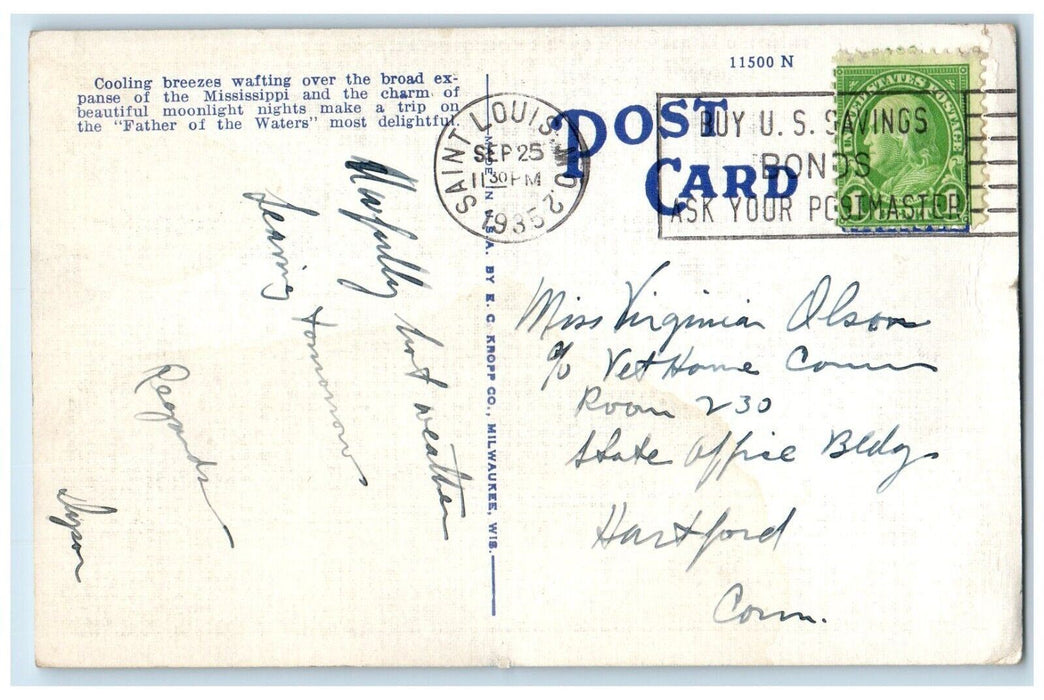 Cooling breezes wafting over the broad ex-
panse of the Mississippi and the charm of
beautiful moonlight nights make a trip on
the "Father of the Waters" most delightful.
11500 N
POST
CARD
SAINT LOUIS, MO. 2
SEP 25
11 30 PM
1935
BUY U. S. SAVINGS
BONDS
ASK YOUR POSTMASTER
UNITED STATES POSTAGE
MADE IN U.S.A. BY E. C. KROPP CO., MILWAUKEE, WIS.
hot weather
Leaving tomorrow
Regards
Miss Virginia Olson
c/o Vet Home Comm
Room 230
State Office Bldg
Hartford
Conn.